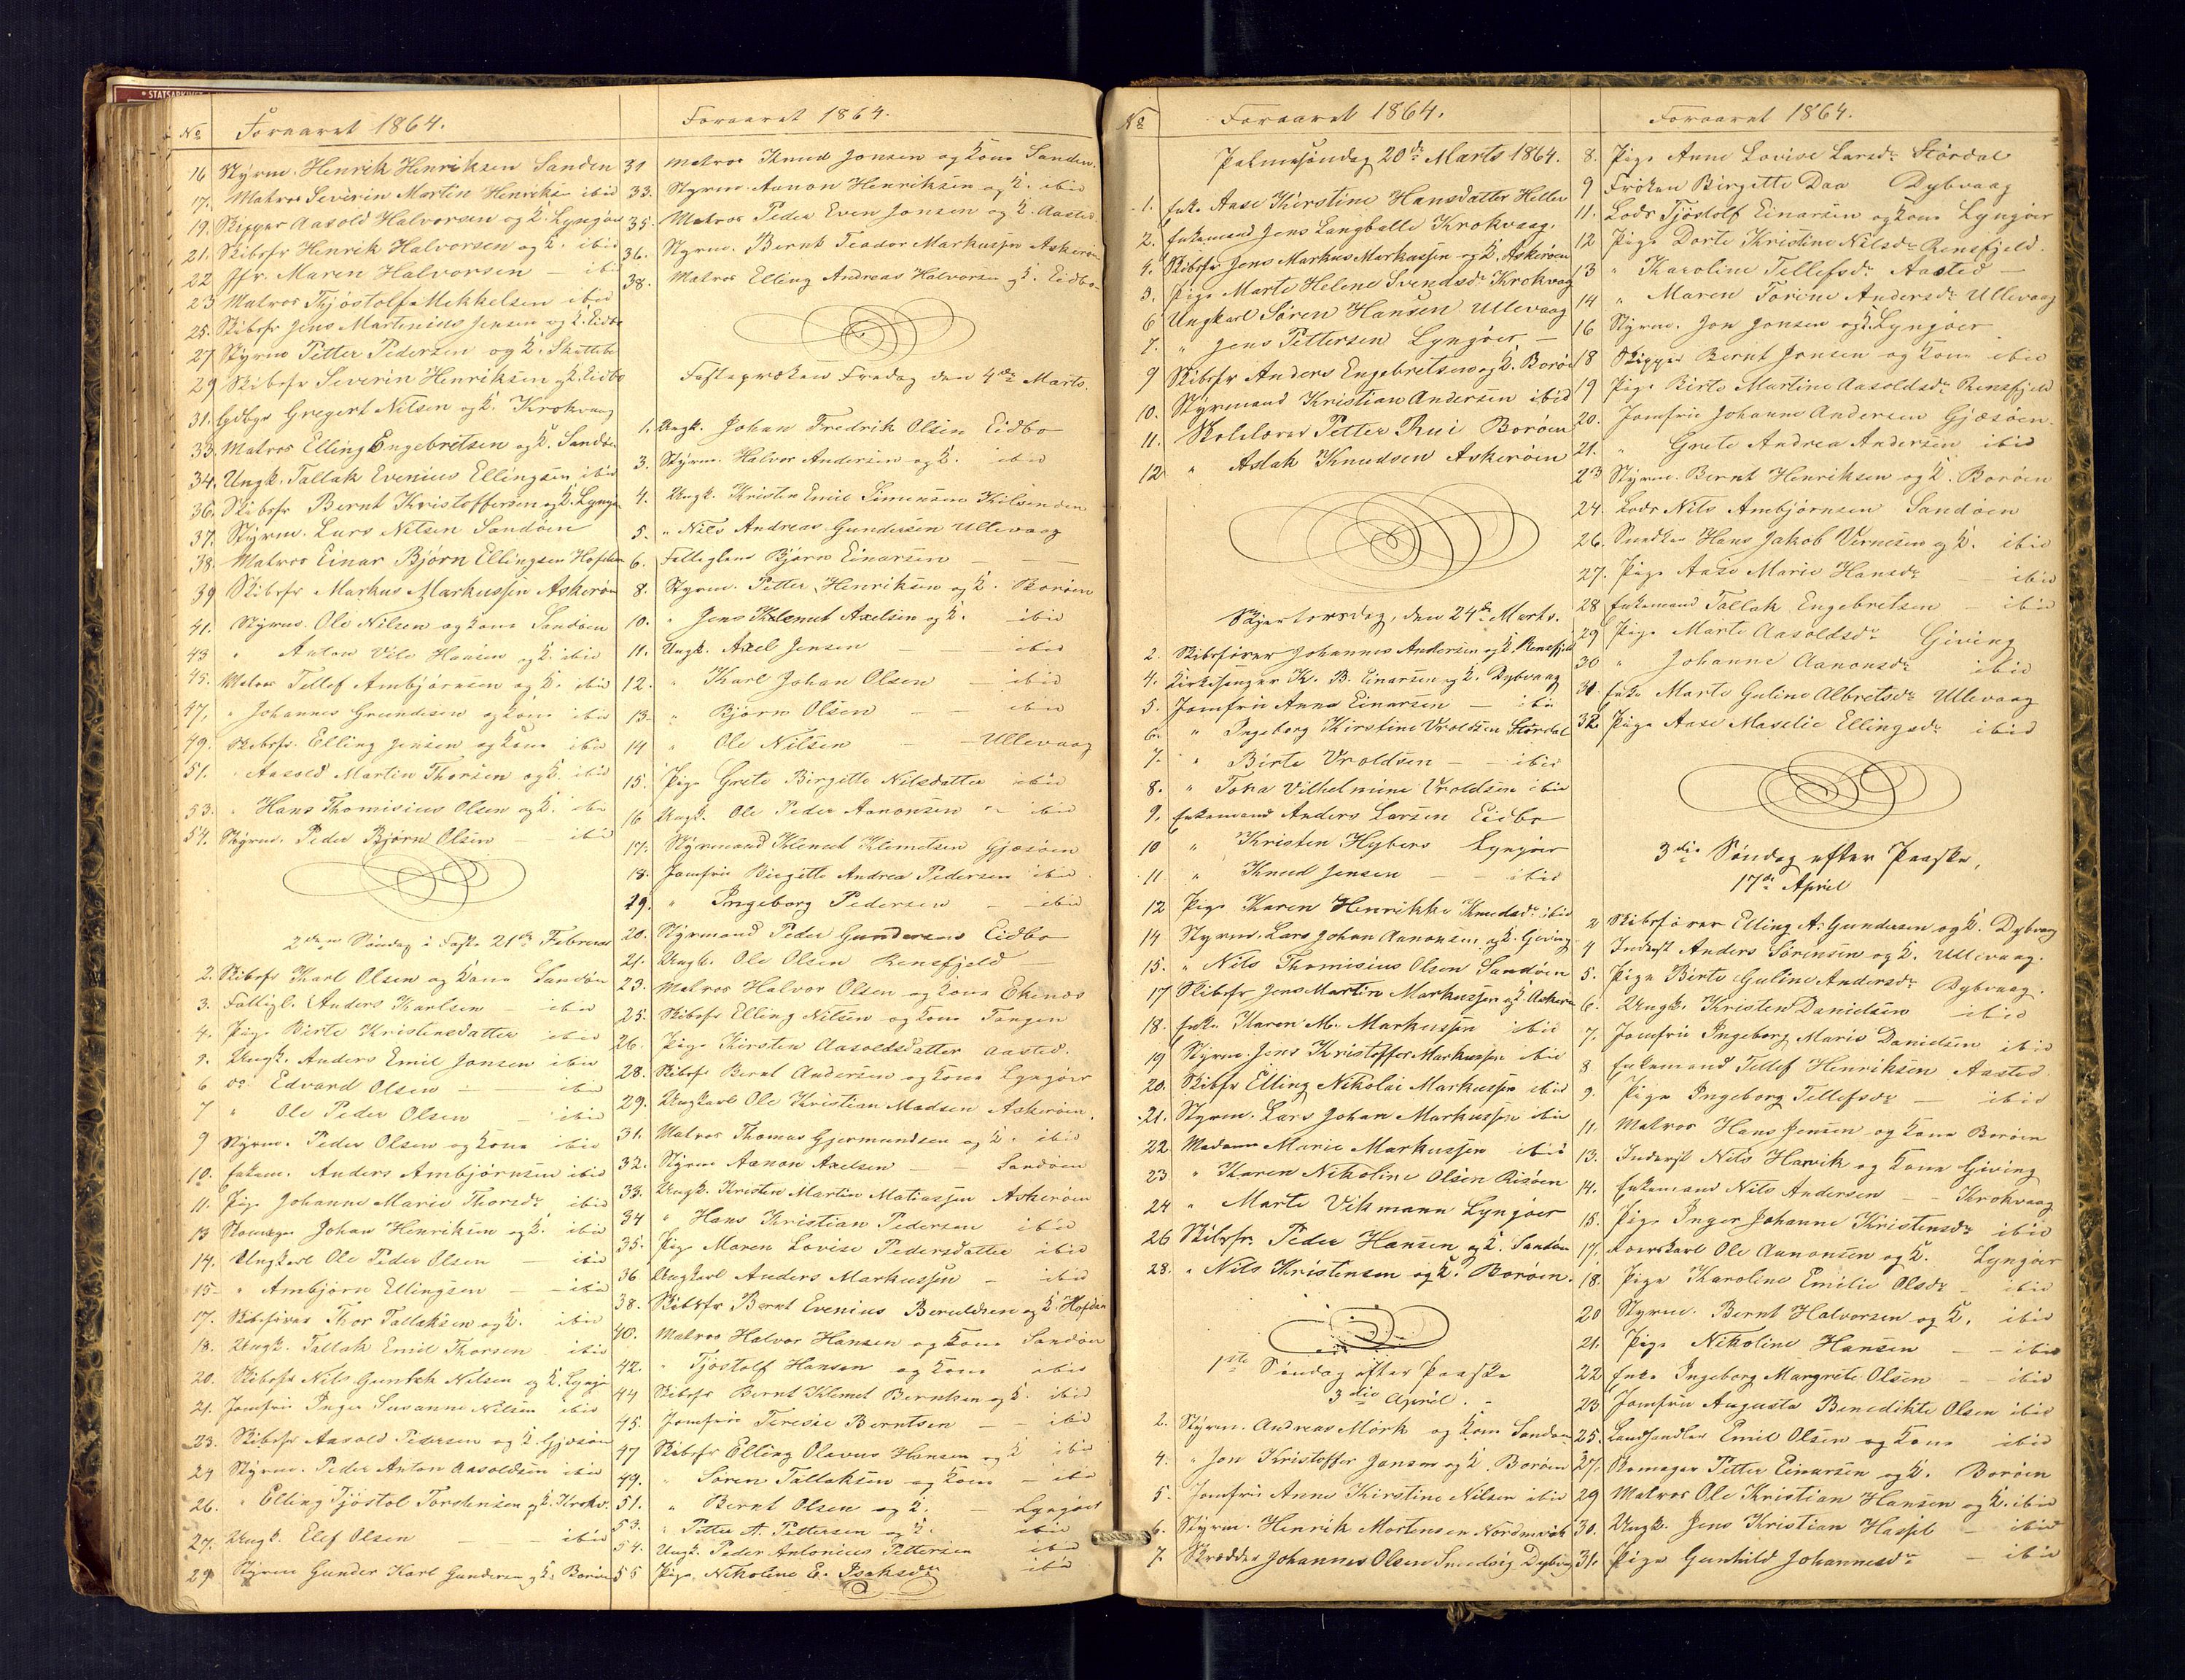 STATSARKIVET
No
Foraaret 1864.
16 Styrm. Henrik Henriksen Sanden
17. Matros Severin Martin Henriksen ibid
19. Skipper Aasold Halvorsen og K. Lyngøer
21. Skibsfr Henrik Halvorsen og K. ibid
22 Jfr. Maren Halvorsen — ibid
23 Matros Tjøstolf Mekkelsen ibid
25. Skibsfr Jens Martinius Jensen og K. Eidbo
27 Styrm Petter Pedersen og K.
29 Skibsfr Severin Henriksen og K. Eidbo
31. Gregert Nilsen og K. Krokvaag
33. Matros Elling Engebretsen og K. Sandøen
34. Ungk. Tallak Evenius Ellingsen ibid
36. Skibsfr Bernt Kristoffersen og K. Lyngøer
37. Styrm. Lars Nilsen Sandøen
38. Matros Einar Bjørn Ellingsen
39 Skibsfr Markus Markussen Askerøen
41. Styrm. Ole Nilsen og Kone Sandøen
43 " Anton Vile Hansen og K. ibid
45. Matros Tellef Ambjørnsen og K. ibid
47. " Johannes Grundesen og Kone ibid
49. Skibsfr. Elling Jensen og Kone ibid
51. " Aasold Martin Thorsen og K. ibid
53. " Hans Thomisius Olsen og K. ibid
54. Styrm. Peder Bjørn Olsen — ibid
2den Søndag i Faste 21de Februar
2. Skibsfr Karl Olsen og Kone Sandøen
3. Fattigl. Anders Karlsen — ibid
4. Pige Birte Kristinesdatter ibid
5. Ungk. Anders Emil Jonsen ibid
6 do Edvard Olsen — ibid
7 " Ole Peder Olsen — ibid
9 Styrm. Peder Olsen og Kone ibid
10. Enkem. Anders Ambjørnsen ibid
11. Pige Johanne Marie Thorsdr ibid
13 Johan Henriksen og K. ibid
14. Ungkarl Ole Peder Olsen — ibid
15 " Ambjørn Ellingsen — ibid
17. Skibsfører Thor Tallaksen og K. ibid
18. Ungk. Tallak Emil Thorsen ibid
20. Skibsfr Nils Nilsen og K. Lyngør
21. Jomfru Inger Susanne Nilsen ibid
23. Skibsfr Aasold Pedersen og K. Gjæsøen
24 Styrm. Peder Anton Aasoldsen ibid
26. " Elling Tjøstol Torstensen og K. Krokv.
27. Ungk. Elef Olsen — — ibid
29 Styrm Gunder Karl Gundersen og K. Borøen
Foraaret 1864.
31 Matros Knud Jonsen og Kone Sanden.
33. Styrm. Aanon Henriksen og K. ibid
35. Matros Peder Even Jonsen og K. Aasted
36. Styrm. Bernt Teodor Markussen Askerøen
38. Matros Elling Andreas Halvorsen og K. Eidbo
Fastepræken Fredag den 4de Marts.
1. Ungk. Johan Fredrik Olsen Eidbo
3. Styrm. Halvor Andersen og K. ibid
4. Ungk. Kristen Emil Simonsen Kilsenden
5. " Nils Andreas Gundersen Ullevaag
6. Bjørn Einarsen — —
8. Styrm. Petter Henriksen og K. Borøen
10. " Jens Klemet Axelsen og K. ibid
11. Ungk. Axel Jensen ibid
12. " Karl Johan Olsen — ibid
13. " Bjørn Olsen — ibid
14 " Ole Nilsen — Ullevaag
15. Pige Grete Birgitte Nilsdatter ibid
16 Ungk. Ole Peder Aanonsen — ibid
17. Styrmand Klemet Klemetsen Gjæsøen
18. Jomfru Birgitte Andrea Pedersen ibid.
19. " Ingeborg Pedersen — ibid
20. Styrmand Peder Gundersen Eidbo
21. Ungk. Ole Olsen Rensfjeld —
23. Matros Halvor Olsen og Kone Ekenæs
25. Skibsfr Elling Nilsen og Kone Tangen
26. Pige Kirsten Aasoldsdatter Aasted.
28. Skibsfr Bernt Andersen og Kone Lyngøer
29. Ungkarl Ole Kristian Madsen Askerøen.
31. Matros Thomas Gjermundsen og K. ibid
32. Styrm Aanon Axelsen — Sandøen
33. Ungk. Kristen Martin Matiassen Askerøen
34 " Hans Kristian Pedersen ibid
35. Pige Maren Lovise Pedersdatter ibid
36 Ungkarl Anders Markussen — ibid
38. Skibsfr Bernt Evenius og K.
40. Matros Halvor Hansen og Kone Sandøen
42. " Tjøstolf Hansen og Kone ibid
44 Skibsfr Bernt Klemet Berntsen og K. ibid
45. Jomfru Teresie Berntsen — — ibid
47 Skibsfr Elling Olavus Hansen og K ibid
49. " Søren Tallaksen og Kone — ibid
51. " Bernt Olsen og K. — Lyngøer
53. " Petter A. Pettersen og K. ibid
54. Ungk. Peder Antonius Pettersen ibid
55 Pige Nikoline E. Isaksdr ibid
No
Foraaret 1864.
Palmesøndag 20de Marts 1864.
1. Enke Aase Kirstine Hansdatter Helle
2. Enkemand Jens Langballe Krokvaag.
4. Skibsfr Jens Markus Markussen og K. Askerøen
5. Pige Marte Helene Svendsdr Krokvaag
6 Ungkarl Søren Hansen Ullevaag
7. " Jens Pettersen Lyngøer —
9 Skibsfr Anders Engebretsen og K. Borøen
10. Styrmand Kristian Andersen ibid
11. Skolelærer Petter Rui Borøen
12. " Aslak Knudsen Askerøen
Skjærtorsdag, den 24de Marts.
2. Skibsfører Johannes Andersen og K. Rensfjeld
4. Kirkesanger K. B. Einarsen og K. Dybvaag
5. Jomfru Anna Einarsen — ibid
6. " Ingeborg Kirstine Vroldsen Størdal
7. " Birte Vroldsen — — ibid
8. " Tora Vilhelmine Vroldsen ibid
9. Enkemand Anders Larsen Eidbo
10 " Kristen Hybers Lyngøer
11. " Knud Jensen — — ibid
12 Pige Karen Henrikke Knudsdr ibid
14 Styrm. Lars Johan Aanonsen og K. Gjeving
15. " Nils Thomisius Olsen Sandøen
17 Skibsfr Jens Martin Markussen og K. Askerøen
18. Enke Karen M. Markussen ibid
19 Styrm. Jens Kristoffer Markussen ibid
20. Skibsfr Elling Nikolai Markussen ibid
21. Styrm. Lars Johan Markussen ibid
22 Madam Marie Markussen ibid
23 " Karen Nikoline Olsen Risøen
24 " Marte Vikmann Lyngøer
26 Skibsfr. Peder Hansen og K. Sandøen
28. " Nils Kristensen og K. Borøen.
1ste Søndag efter Paaske
3die April. —
2. Styrm. Andreas Mørk og Kone Sandøen
4. " Jon Kristoffer Jansen og K. Borøen
5. Jomfru Anne Kirstine Nilsen ibid
6. Styrm. Henrik Mortensen
7. Skrædder Johannes Olsen Dybvaag
Foraaret 1864.
8. Pige Anne Lovise Larsdr Størdal
9 Frøken Birgitte Daa Dybvaag
11. Lods Tjøstolf Einarsen og Kone Lyngøer
12 Pige Dorte Kristine Nilsdr Rensfjeld.
13 " Karoline Tellefsdr Aasted —
14 " Maren Torine Andersdr Ullevaag
16 Styrm. Jon Jonsen og K. Lyngøer
18 Skipper Bernt Jonsen og Kone ibid
19 Pige Birte Martine Aasoldsdr Rensfjeld
20. Jomfru Johanne Andersen Gjæsøen.
21. " Grete Andrea Andersen ibid
23 Styrm. Bernt Henriksen og K. Borøen
24. Lods Nils Ambjørnsen Sandøen
26. Snedker Hans Jakob Vernesen og K. ibid
27. Pige Aase Marie Hansdr — ibid
28 Enkemand Tallak Engebretsen — ibid
29 Pige Marte Aasoldsdr Giving
30 " Johanne Aanonsdr ibid
31. Enke Marte Guline Albretsdr Ullevaag
32. Pige Aase Maselie Ellingsdr ibid
3die Søndag efter Paaske,
17de April
2 Skibsfører Elling A. Gundersen og K. Dybvaag
4 Inderst Anders Sørensen og K. Ullevaag.
5. Pige Birte Guline Andersdr Dybvaag.
6. Ungk. Kristen Danielsen ibid
7. Jomfru Ingeborg Marie Danielsen ibid
8 Enkemand Tellef Henriksen Aasted.
9. Pige Ingeborg Tellefsdr — ibid
11. Matros Hans Jensen og Kone Borøen
13. Inderst Nils Harvik og Kone Giving
14. Enkemand Nils Andersen — — Krokvaag
15. Pige Inger Johanne Kristensdr ibid
17. Ole Aanonsen og K. Lyngøer
18. Pige Karoline Emilie Olsdr — ibid
20 Styrm. Bernt Halvorsen og K. ibid
21. Pige Nikoline Hansen — — ibid
22 Enke Ingeborg Margrete Olsen — — ibid
23 Jomfru Augusta Benedikte Olsen ibid
25. Landhandler Emil Olsen og Kone ibid
27. Petter Einarsen og K. Borøen
29 Matros Ole Kristian Hansen og K. ibid
30. Ungk. Jens Kristian — ibid
31. Pige Gunhild Johannesdr — ibid